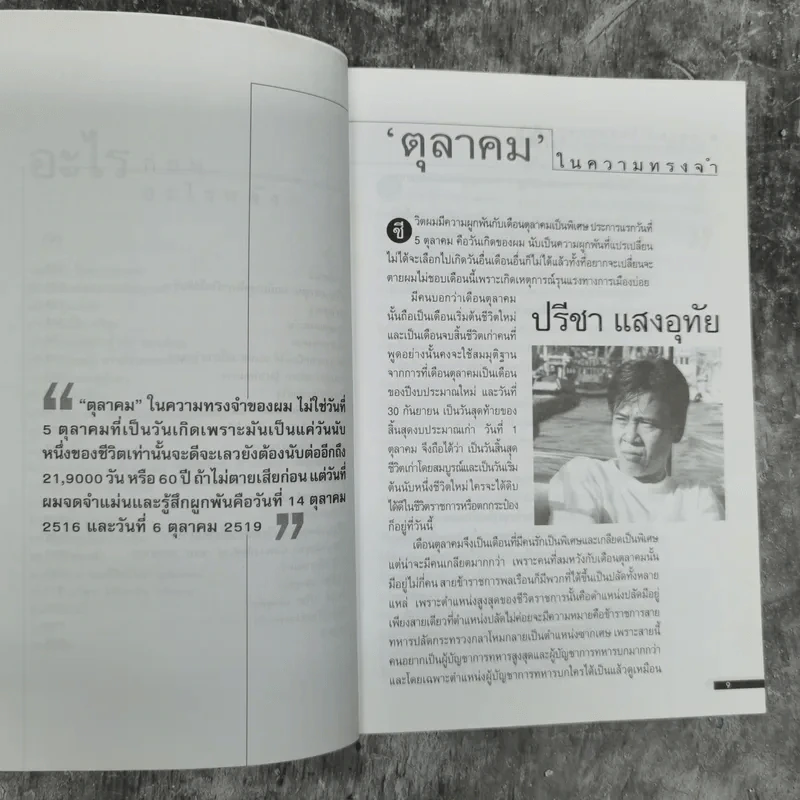 “ “ตุลาคม” ในความทรงจำของผม ไม่ใช่วันที่
5 ตุลาคมที่เป็นวันเกิดเพราะมันเป็นแค่วันนับ
หนึ่งของชีวิตเท่านั้นจะดีจะเลวยังต้องนับต่ออีกถึง
21,9000 วัน หรือ 60 ปี ถ้าไม่ตายเสียก่อน แต่วันที่
ผมจดจำแม่นและรู้สึกผูกพันคือวันที่ 14 ตุลาคม
2516 และวันที่ 6 ตุลาคม 2519 ”
‘ตุลาคม’
ในความทรงจำ
ชีวิตผมมีความผูกพันกับเดือนตุลาคมเป็นพิเศษ ประการแรกวันที่
5 ตุลาคม คือวันเกิดของผม นับเป็นความผูกพันที่แปรเปลี่ยน
ไม่ได้จะเลือกไปเกิดวันอื่นเดือนอื่นก็ไม่ได้แล้วทั้งที่อยากจะเปลี่ยนจะ
ตายผมไม่ชอบเดือนนี้เพราะเกิดเหตุการณ์รุนแรงทางการเมืองบ่อย
มีคนบอกว่าเดือนตุลาคม
นั้นถือเป็นเดือนเริ่มต้นชีวิตใหม่
และเป็นเดือนจบสิ้นชีวิตเก่าคนที่
พูดอย่างนั้นคงจะใช้สมมุติฐาน
จากการที่เดือนตุลาคมเป็นเดือน
ของปีงบประมาณใหม่ และวันที่
30 กันยายน เป็นวันสุดท้ายของ
สิ้นสุดงบประมาณเก่า วันที่ 1
ตุลาคม จึงถือได้ว่า เป็นวันสิ้นสุด
ชีวิตเก่าโดยสมบูรณ์และเป็นวันเริ่ม
ต้นนับหนึ่งชีวิตใหม่ ใครจะได้ดิบ
ได้ดีในชีวิตราชการหรือตกกระป๋อง
ก็อยู่ที่วันนี้
ปรีชา แสงอุทัย
เดือนตุลาคมจึงเป็นเดือนที่มีคนรักเป็นพิเศษและเกลียดเป็นพิเศษ
แต่น่าจะมีคนเกลียดมากกว่า เพราะคนที่สมหวังกับเดือนตุลาคมนั้น
มีอยู่ไม่กี่คน สายข้าราชการพลเรือนก็มีพวกที่ได้ขึ้นเป็นปลัดทั้งหลาย
แหล่ เพราะตำแหน่งสูงสุดของชีวิตราชการนั้นคือตำแหน่งปลัดมีอยู่
เพียงสายเดียวที่ตำแหน่งปลัดไม่ค่อยจะมีความหมายคือข้าราชการสาย
ทหารปลัดกระทรวงกลาโหมกลายเป็นตำแหน่งซากเศษ เพราะสายนี้
คนอยากเป็นผู้บัญชาการทหารสูงสุดและผู้บัญชาการทหารบกมากกว่า
และโดยเฉพาะตำแหน่งผู้บัญชาการทหารบกใครได้เป็นแล้วดูเหมือน
9